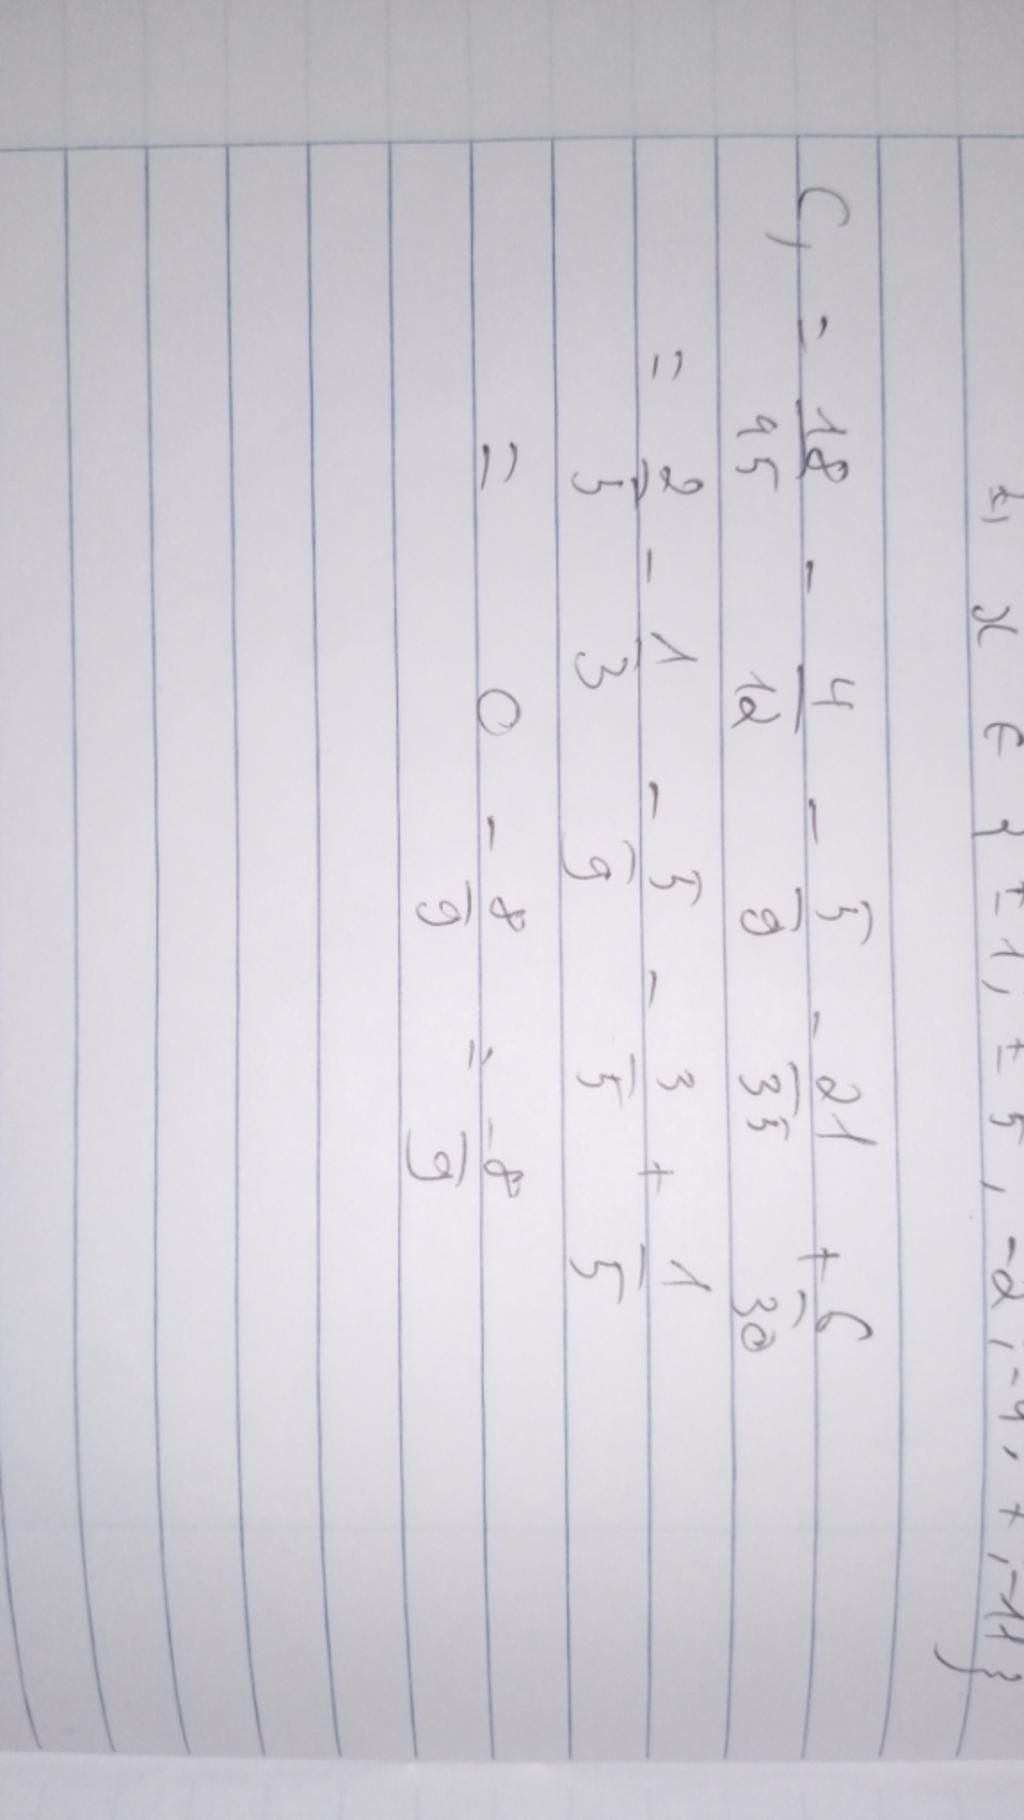 x ∈ { ±1, ±5, -2, -4, +, -11}
C, = 18/45 - 4/12 - 5/9 - 21/35 + 6/30
= 2/5 - 1/3 - 5/9 - 3/5 + 1/5
= 0 - 8/9 = -8/9